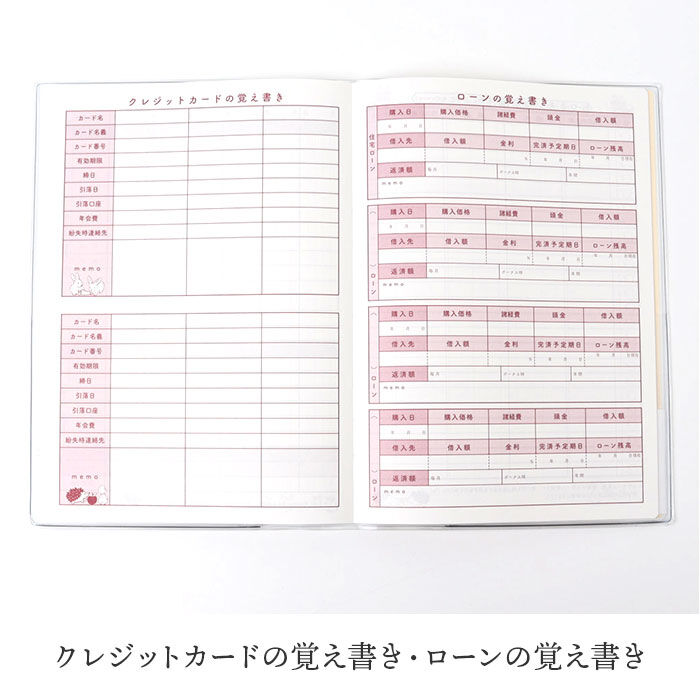 クレジットカードの覚え書き
カード名
カード名義
カード番号
有効期限
締日
引落日
引落口座
年会費
紛失時連絡先
memo
カード名
カード名義
カード番号
有効期限
締日
引落日
引落口座
年会費
紛失時連絡先
memo
ローンの覚え書き
住宅ローン
購入日 購入価格 諸経費 頭金 借入額
年 月 日
借入先 借入額 金利 完済予定期日 ローン残高
% 年 月 日 年 月 日現在
返済額 毎月 ボーナス時 年間
memo
( )ローン
購入日 購入価格 諸経費 頭金 借入額
年 月 日
借入先 借入額 金利 完済予定期日 ローン残高
% 年 月 日 年 月 日現在
返済額 毎月 ボーナス時 年間
memo
( )ローン
購入日 購入価格 諸経費 頭金 借入額
年 月 日
借入先 借入額 金利 完済予定期日 ローン残高
% 年 月 日 年 月 日現在
返済額 毎月 ボーナス時 年間
memo
( )ローン
購入日 購入価格 諸経費 頭金 借入額
年 月 日
借入先 借入額 金利 完済予定期日 ローン残高
% 年 月 日 年 月 日現在
返済額 毎月 ボーナス時 年間
memo
クレジットカードの覚え書き・ローンの覚え書き